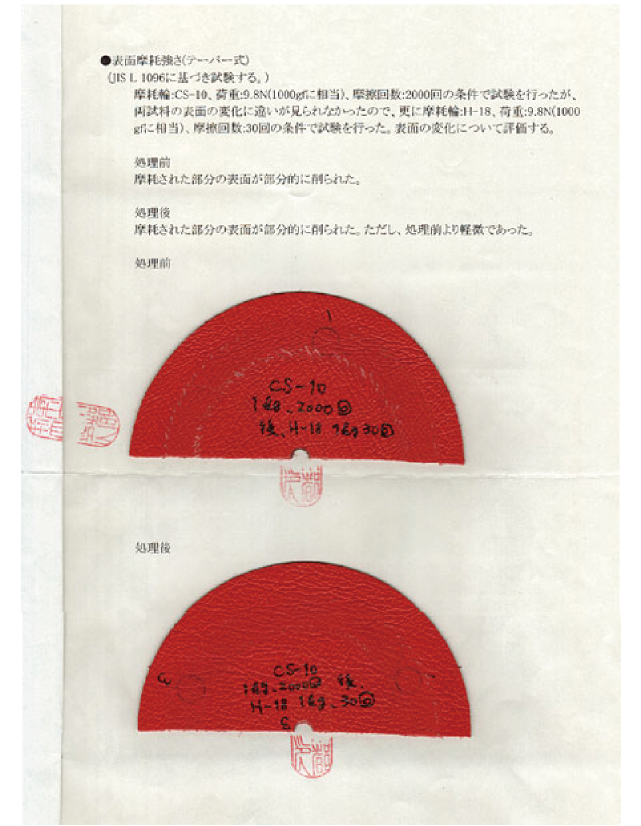 ●表面摩耗強さ(テーバー式)
(JIS L 1096に基づき試験する。)
摩耗輪:CS-10、荷重:9.8N(1000gfに相当)、摩擦回数:2000回の条件で試験を行ったが、
両試料の表面の変化に違いが見られなかったので、更に摩耗輪:H-18、荷重:9.8N(1000
gfに相当)、摩擦回数:30回の条件で試験を行った。表面の変化について評価する。
処理前
摩耗された部分の表面が部分的に削られた。
処理後
摩耗された部分の表面が部分的に削られた。ただし、処理前より軽微であった。
処理前
1
CS-10
1kg、2000回
後、H-18 1kg 30回
処理後
3
CS-10
1kg、2000回 後、
H-18 1kg、30回